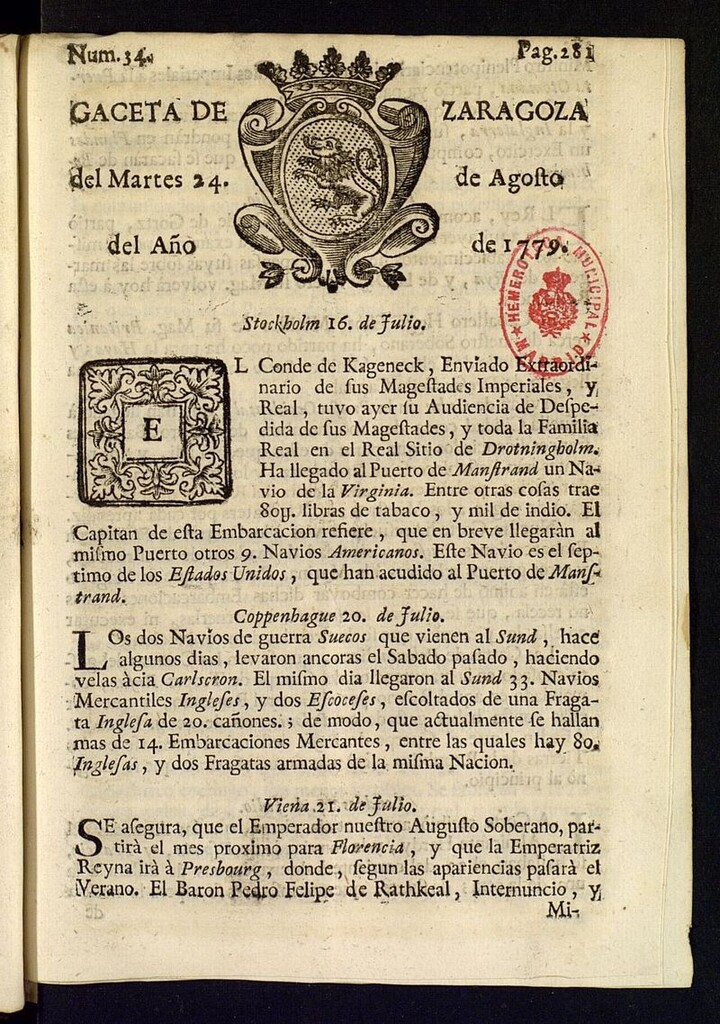 Num. 34.
Pag. 281
GACETA DE ZARAGOZA
del Martes 24. de Agoſto
del Año de 1779.
HEMEROTECA MUNICIPAL
★ MADRID ★
Stockholm 16. de Julio.
EL Conde de Kageneck, Enviado Extraordi-
nario de ſus Mageſtades Imperiales, y
Real, tuvo ayer ſu Audiencia de Deſpe-
dida de ſus Mageſtades, y toda la Familia
Real en el Real Sitio de Drotningholm.
Ha llegado al Puerto de Manſtrand un Na-
vio de la Virginia. Entre otras coſas trae
80ɥ. libras de tabaco, y mil de indio. El
Capitan de eſta Embarcacion refiere, que en breve llegaràn al
miſmo Puerto otros 9. Navios Americanos. Eſte Navio es el ſep-
timo de los Eſtados Unidos, que han acudido al Puerto de Manſ-
trand.
Coppenhague 20. de Julio.
LOs dos Navios de guerra Suecos que vienen al Sund, hace
algunos dias, levaron ancoras el Sabado paſado, haciendo
velas àcia Carlscron. El miſmo dia llegaron al Sund 33. Navios
Mercantiles Ingleſes, y dos Eſcoceſes, eſcoltados de una Fraga-
ta Ingleſa de 20. cañones.; de modo, que actualmente ſe hallan
mas de 14. Embarcaciones Mercantes, entre las quales hay 80.
Ingleſas, y dos Fragatas armadas de la miſma Nacion.
Viena 21. de Julio.
SE aſegura, que el Emperador nueſtro Auguſto Soberano, par-
tirà el mes proximo para Florencia, y que la Emperatriz
Reyna irà à Presbourg, donde, ſegun las apariencias paſarà el
Verano. El Baron Pedro Felipe de Rathkeal, Internuncio, y
Mi-